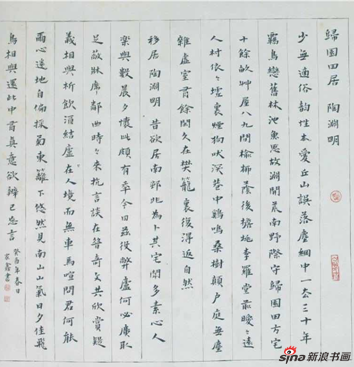 歸園田居 陶淵明
少無適俗韻性本愛丘山誤落塵網中一去三十年
羈鳥戀舊林池魚思故淵開荒南野際守歸園田方宅
十餘畝草屋八九間榆柳蔭後檐桃李羅堂前曖曖遠
人村依依墟裏煙狗吠深巷中雞鳴桑樹顛戶庭無塵
雜虛室有餘閒久在樊籠裏復得返自然
移居 陶淵明 昔欲居南邨非為卜其宅聞多素心人
樂與數晨夕懷此頗有年今日茲役弊廬何必廣取
足蔽牀席鄰曲時時來抗言談在昔奇文共欣賞疑
義相與析飲酒結廬在人境而無車馬喧問君何能
爾心遠地自偏採菊東籬下悠然見南山山氣日夕佳飛
鳥相與還此中有真意欲辨已忘言
年春日
書
sina 新浪书画